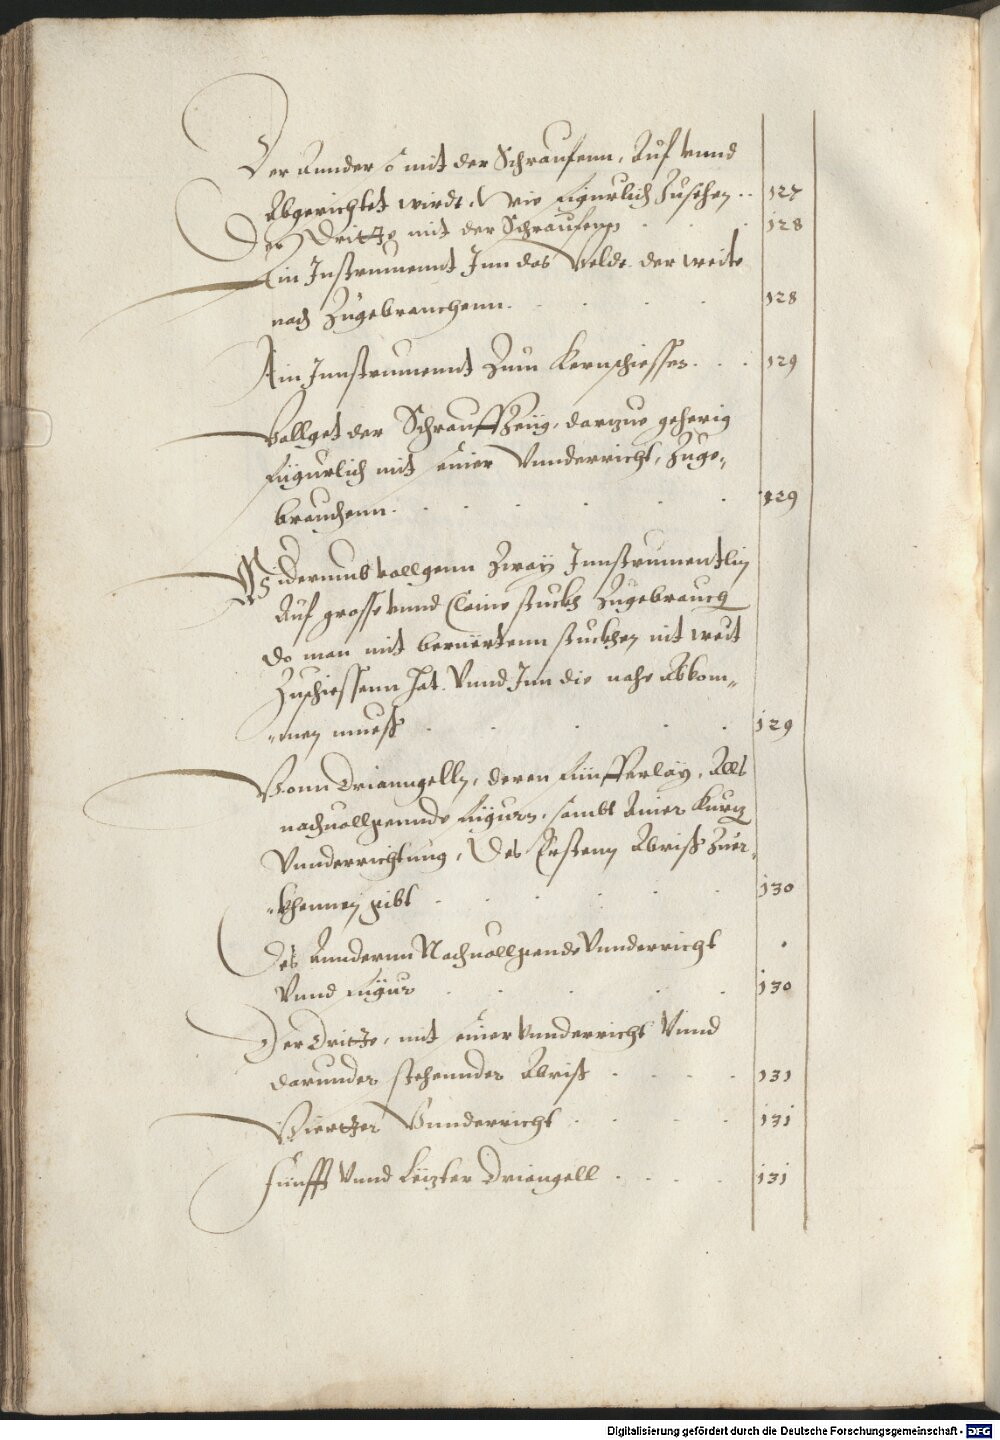 Der Annder so mit der Schraufenn, Auf vnnd
Abgerichtet wirdt, Wie Figurlich Zusehen .. 127
Der Dritte mit der Schraufenn . . . 128
Ein Instrumennt Inn das Velde der weite
nach Zugebrauchenn . . . . 128
Ain Innstrumennt Zum Kernschiessen . . . 129
Vollget der Schrauffzeug, darzue geherig
Figurlich mit seiner Vnnderricht, Zuge„
brauchenn . . . . . . 129
Widerumb vollgenn Zway Innstrumentlin
Auf grosse vnnd Claine stuckh Zugebrauch
do man mit beruertenn stuckhen nit weit
Zuschiessenn hat. Vnnd Inn die nahe Abkom„
„men muess . . . . . 129
Vonn Drianngelln, deren Fünfferlay, Alls
nachuollgennde Figurn, sambt Ainer kurtz
Vnnderrichtung, Des Erstenn Abriss Zuer„
„khennen gibt . . . . . 130
Des Anndernn Nachuollgende Vnnderricht
Vnnd Figur . . . . 130
Der Dritte, mit seiner vnnderricht Vnnd
darunder stehennder Abriss . . . . 131
Viertter Vnnderricht . . . . 131
Fünfft Vnnd Letzter Driangell . . . . 131
Digitalisierung gefördert durch die Deutsche Forschungsgemeinschaft - DFG